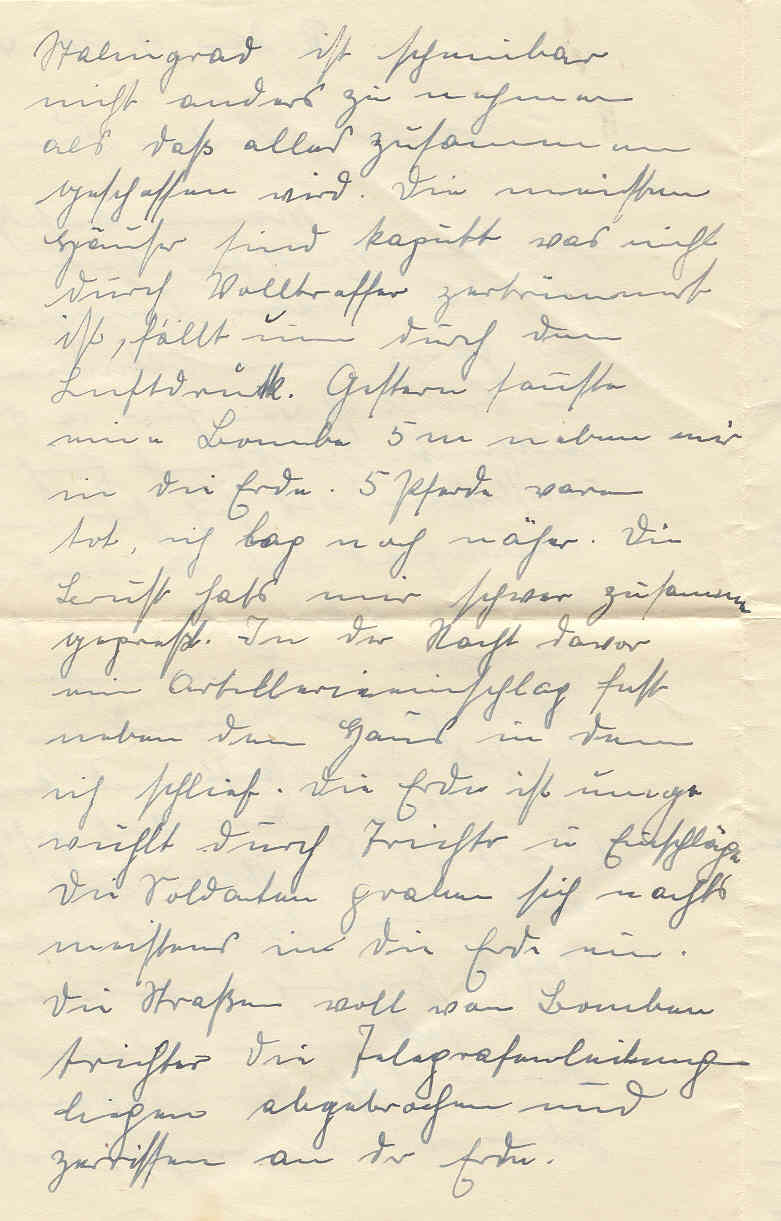 Stalingrad ist scheinbar
nicht anders zu nehmen
als daß alles zusammen
geschossen wird. Die meisten
Häuser sind kaputt was nicht
durch Volltreffer zertrümmert
ist, fällt um durch den
Luftdruck. Gestern sauste
eine Bombe 5 m neben mir
in die Erde. 5 Pferde waren
tot, ich lag noch näher. Die
Brust hats mir schwer zusammen
gepreßt. In der Nacht davor
ein Artillerieeinschlag fast
neben dem Haus in dem
ich schlief. Die Erde ist umge
wühlt durch Trichter u Einschläge
Die Soldaten graben sich nachts
meistens in die Erde ein.
Die Straßen voll von Bomben
trichter die Telegrafenleitung
liegen abgebrochen und
zerrissen an der Erde.